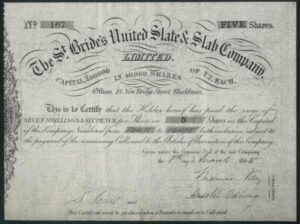 No 167 FIVE Shares.
The St. Bride's United Slate & Slab Company,
LIMITED.
CAPITAL £20,000 IN 10,000 SHARES OF £2 EACH.
Offices, 18, New Bridge Street, Blackfriars.
This is to Certify that the Holder hereof has paid the sum of
SEVEN SHILLINGS & SIXPENCE per Share on 5 Shares in the Capital
of this Company Numbered from to both inclusive, subject to
the payment of the remaining Calls and to the Articles of Association of this Company.
Given under the Common Seal of the said Company
the 7th day of March
This Certificate must be produced when a Transfer is made or a Call paid.